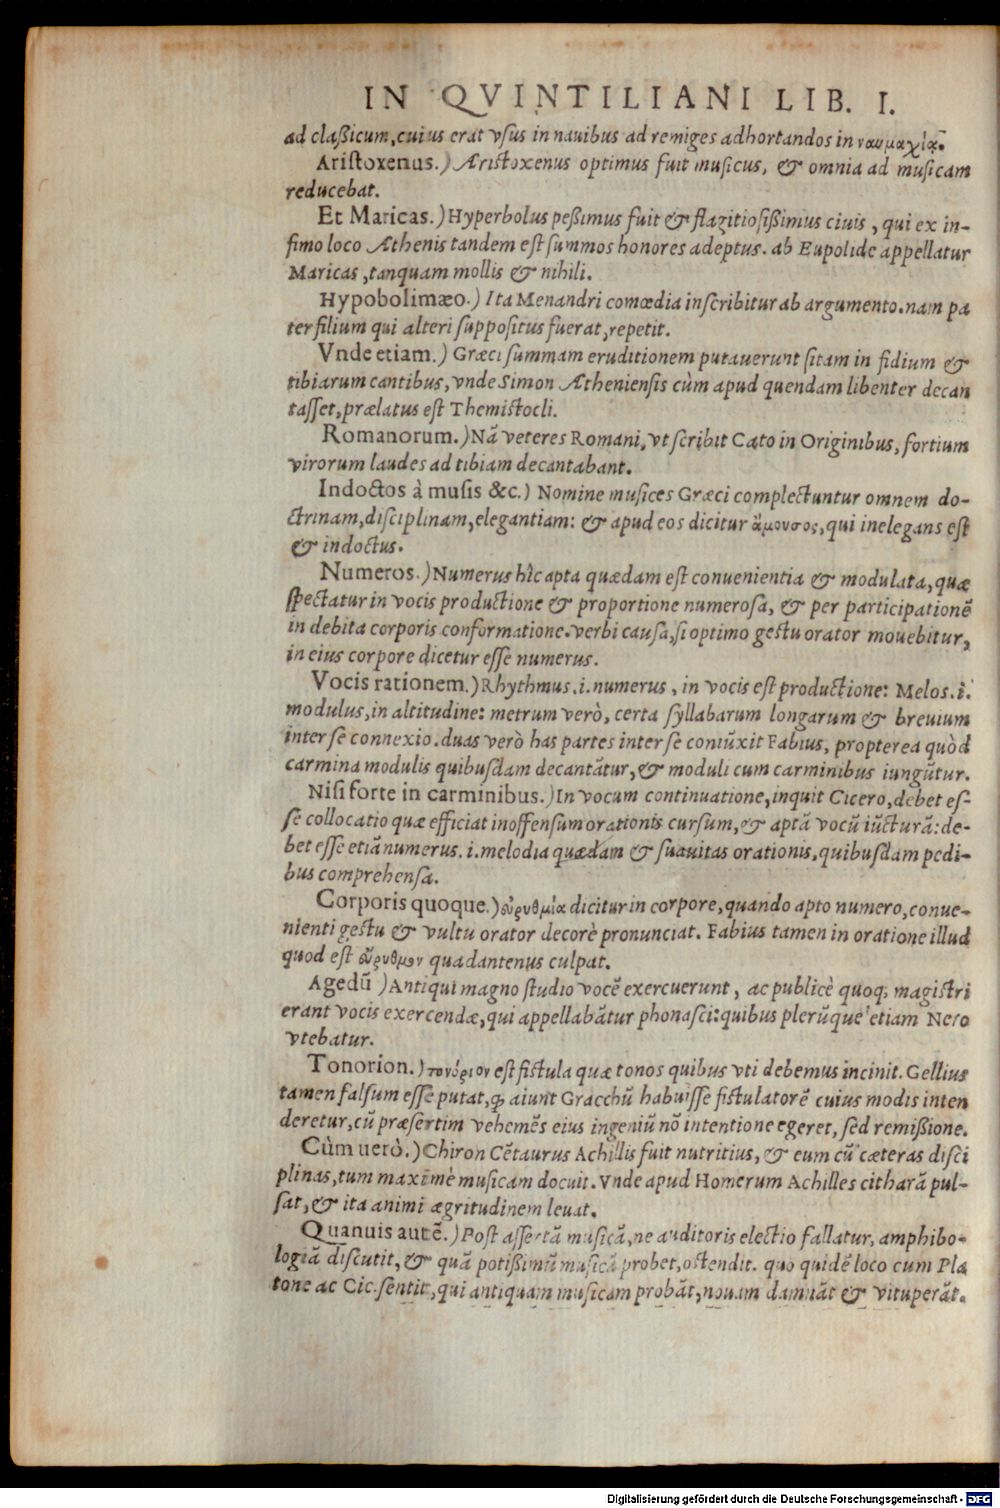 IN QVINTILIANI LIB. I.
ad claßicum, cuius erat vsus in nauibus ad remiges adhortandos in ναυμαχίᾳ.
Aristoxenus.) Aristoxenus optimus fuit musicus, & omnia ad musicam
reducebat.
Et Maricas.) Hyperbolus peßimus fuit & flagitiosißimus ciuis, qui ex in-
fimo loco Athenis tandem est summos honores adeptus. ab Eupolide appellatur
Maricas, tanquam mollis & nihili.
Hypobolimæo.) Ita Menandri comœdia inscribitur ab argumento. nam pa
ter filium qui alteri suppositus fuerat, repetit.
Vnde etiam.) Græci summam eruditionem putauerunt sitam in fidium &
tibiarum cantibus, vnde Simon Atheniensis cùm apud quendam libenter decan
tasset, prælatus est Themistocli.
Romanorum.) Nā veteres Romani, vt scribit Cato in Originibus, fortium
virorum laudes ad tibiam decantabant.
Indoctos à musis &c.) Nomine musices Græci complectuntur omnem do-
ctrinam, disciplinam, elegantiam: & apud eos dicitur ἄμουσος, qui inelegans est
& indoctus.
Numeros.) Numerus hîc apta quædam est conuenientia & modulata, quæ
spectatur in vocis productione & proportione numerosa, & per participationē
in debita corporis conformatione. verbi causa, si optimo gestu orator mouebitur,
in eius corpore dicetur esse numerus.
Vocis rationem.) Rhythmus .i. numerus, in vocis est productione: Melos .i.
modulus, in altitudine: metrum verò, certa syllabarum longarum & breuium
inter se connexio. duas verò has partes inter se coniūxit Fabius, propterea quòd
carmina modulis quibusdam decantātur, & moduli cum carminibus iungūtur.
Nisi forte in carminibus.) In vocum continuatione, inquit Cicero, debet es-
se collocatio quæ efficiat inoffensum orationis cursum, & aptā vocū iūcturā: de-
bet esse etiā numerus .i. melodia quædam & suauitas orationis, quibusdam pedi-
bus comprehensa.
Corporis quoque.) εὐρυθμία dicitur in corpore, quando apto numero, conue-
nienti gestu & vultu orator decorè pronunciat. Fabius tamen in oratione illud
quod est εὔρυθμον quadantenus culpat.
Agedū ) Antiqui magno studio vocē exercuerunt, ac publicè quoq; magistri
erant vocis exercendæ, qui appellabātur phonasci: quibus plerūque etiam Nero
vtebatur.
Tonorion.) τονόριον est fistula quæ tonos quibus vti debemus incinit. Gellius
tamen falsum esse putat, ꝙ aiunt Gracchū habuisse fistulatorē cuius modis inten
deretur, cū præsertim vehemēs eius ingeniū nō intentione egeret, sed remißione.
Cùm uerò.) Chiron Cētaurus Achillis fuit nutritius, & eum cū cæteras disci
plinas, tum maximè musicam docuit. Vnde apud Homerum Achilles citharā pul-
sat, & ita animi ægritudinem leuat.
Quanuis autē.) Post assertā musicā, ne auditoris electio fallatur, amphibo-
logiā discutit, & quā potißimū musicā probet, ostendit. quo quidē loco cum Pla
tone ac Cic. sentit, qui antiquam musicam probāt, nouam damnāt & vituperāt.
Digitalisierung gefördert durch die Deutsche Forschungsgemeinschaft - DFG